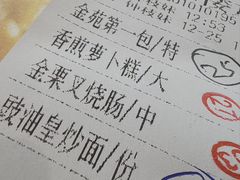 12:53
12-25
金苑第一包/特
香煎萝卜糕/大
金栗叉烧肠/中
豉油皇炒面/份